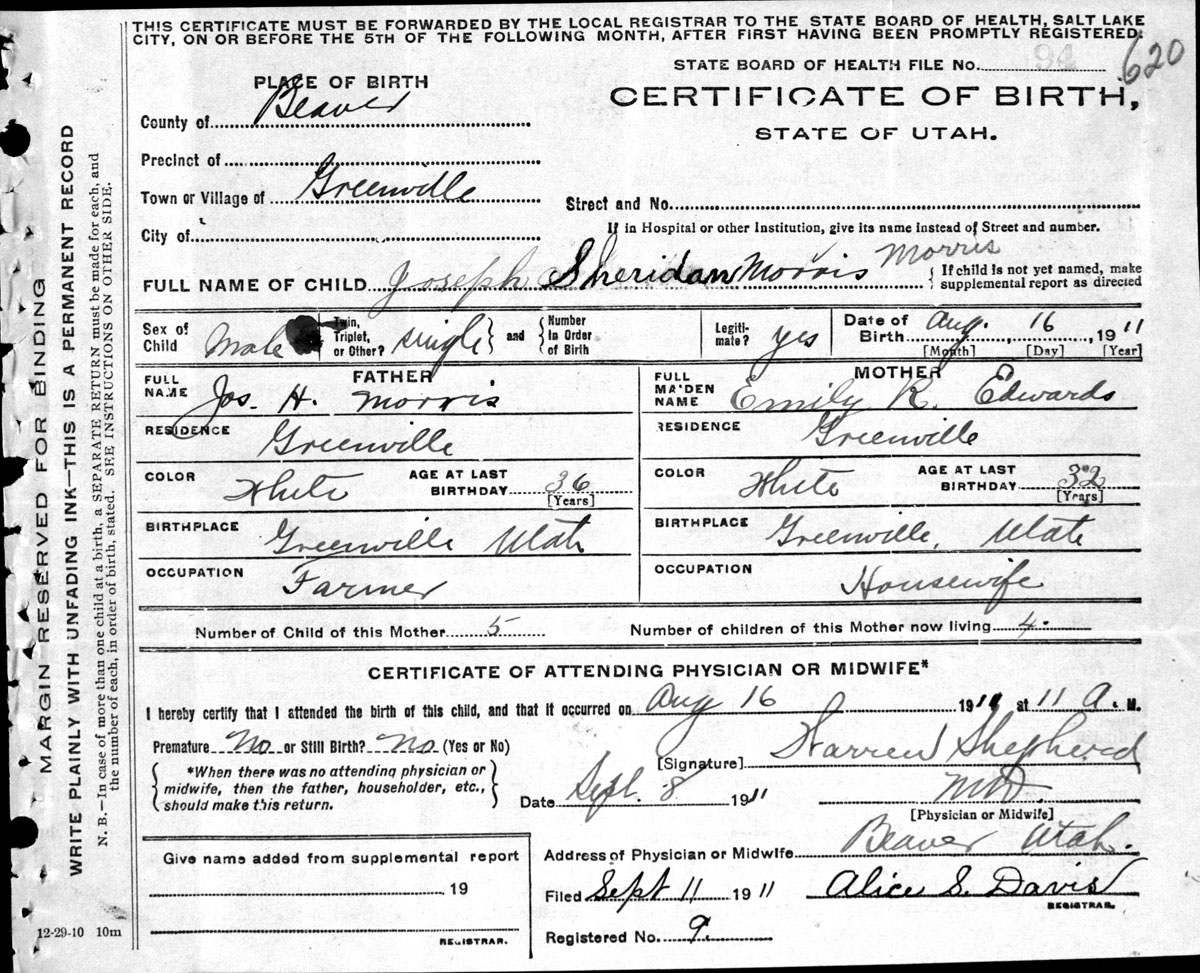 THIS CERTIFICATE MUST BE FORWARDED BY THE LOCAL REGISTRAR TO THE STATE BOARD OF HEALTH, SALT LAKE
CITY, ON OR BEFORE THE 5TH OF THE FOLLOWING MONTH, AFTER FIRST HAVING BEEN PROMPTLY REGISTERED.
94 620
STATE BOARD OF HEALTH FILE NO.
PLACE OF BIRTH
CERTIFICATE OF BIRTH,
STATE OF UTAH.
County of Beaver
Precinct of
Town or Village of Greenville
Street and No.
City of
If in Hospital or other Institution, give its name instead of Street and number.
FULL NAME OF CHILD Joseph Sheridan Morris Morris
{ If child is not yet named, make
supplemental report as directed
Sex of Child Male
Twin, Triplet, or Other? single } and { Number In Order of Birth
Legitimate? yes
Date of Birth Aug. 16, 1911
[Month] [Day] [Year]
FATHER
FULL NAME Jos. H. Morris
RESIDENCE Greenville
COLOR White AGE AT LAST BIRTHDAY 36
[Years]
BIRTHPLACE Greenville Utah
OCCUPATION Farmer
MOTHER
FULL MAIDEN NAME Emily R. Edwards
RESIDENCE Greenville
COLOR White AGE AT LAST BIRTHDAY 32
[Years]
BIRTHPLACE Greenville, Utah
OCCUPATION Housewife
Number of Child of this Mother 5 Number of children of this Mother now living 4.
CERTIFICATE OF ATTENDING PHYSICIAN OR MIDWIFE*
I hereby certify that I attended the birth of this child, and that it occurred on Aug 16 1911 at 11 A. M.
Premature No or Still Birth? No (Yes or No)
[Signature] Warren Shepherd
{ *When there was no attending physician or
midwife, then the father, householder, etc.,
should make this return. }
Date Sept. 8 1911 M.D.
[Physician or Midwife]
Address of Physician or Midwife Beaver Utah.
Give name added from supplemental report
19
REGISTRAR.
Filed Sept 11 1911 Alice S. Davis
REGISTRAR.
Registered No. 9.
12-29-10 10m
MARGIN RESERVED FOR BINDING
WRITE PLAINLY WITH UNFADING INK—THIS IS A PERMANENT RECORD
N. B.—In case of more than one child at a birth, a SEPARATE RETURN must be made for each, and
the number of each, in order of birth, stated. SEE INSTRUCTIONS ON OTHER SIDE.